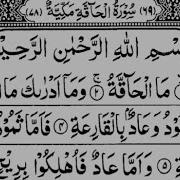 (٦٩) سُوْرَةُ الْحَاقَّةِ مَكِّيَّةٌ (٧٨)
سْمِ اللّٰهِ الرَّحْمٰنِ الرَّحِيْمِ
مَا الْحَاقَّةُ ۚ وَمَآ اَدْرٰىكَ مَا
وْدُ وَعَادٌۢ بِالْقَارِعَةِ ۝٤ فَاَمَّا ثَمُوْدُ
۝٥ وَاَمَّا عَادٌ فَاُهْلِكُوْا بِرِيْحٍ